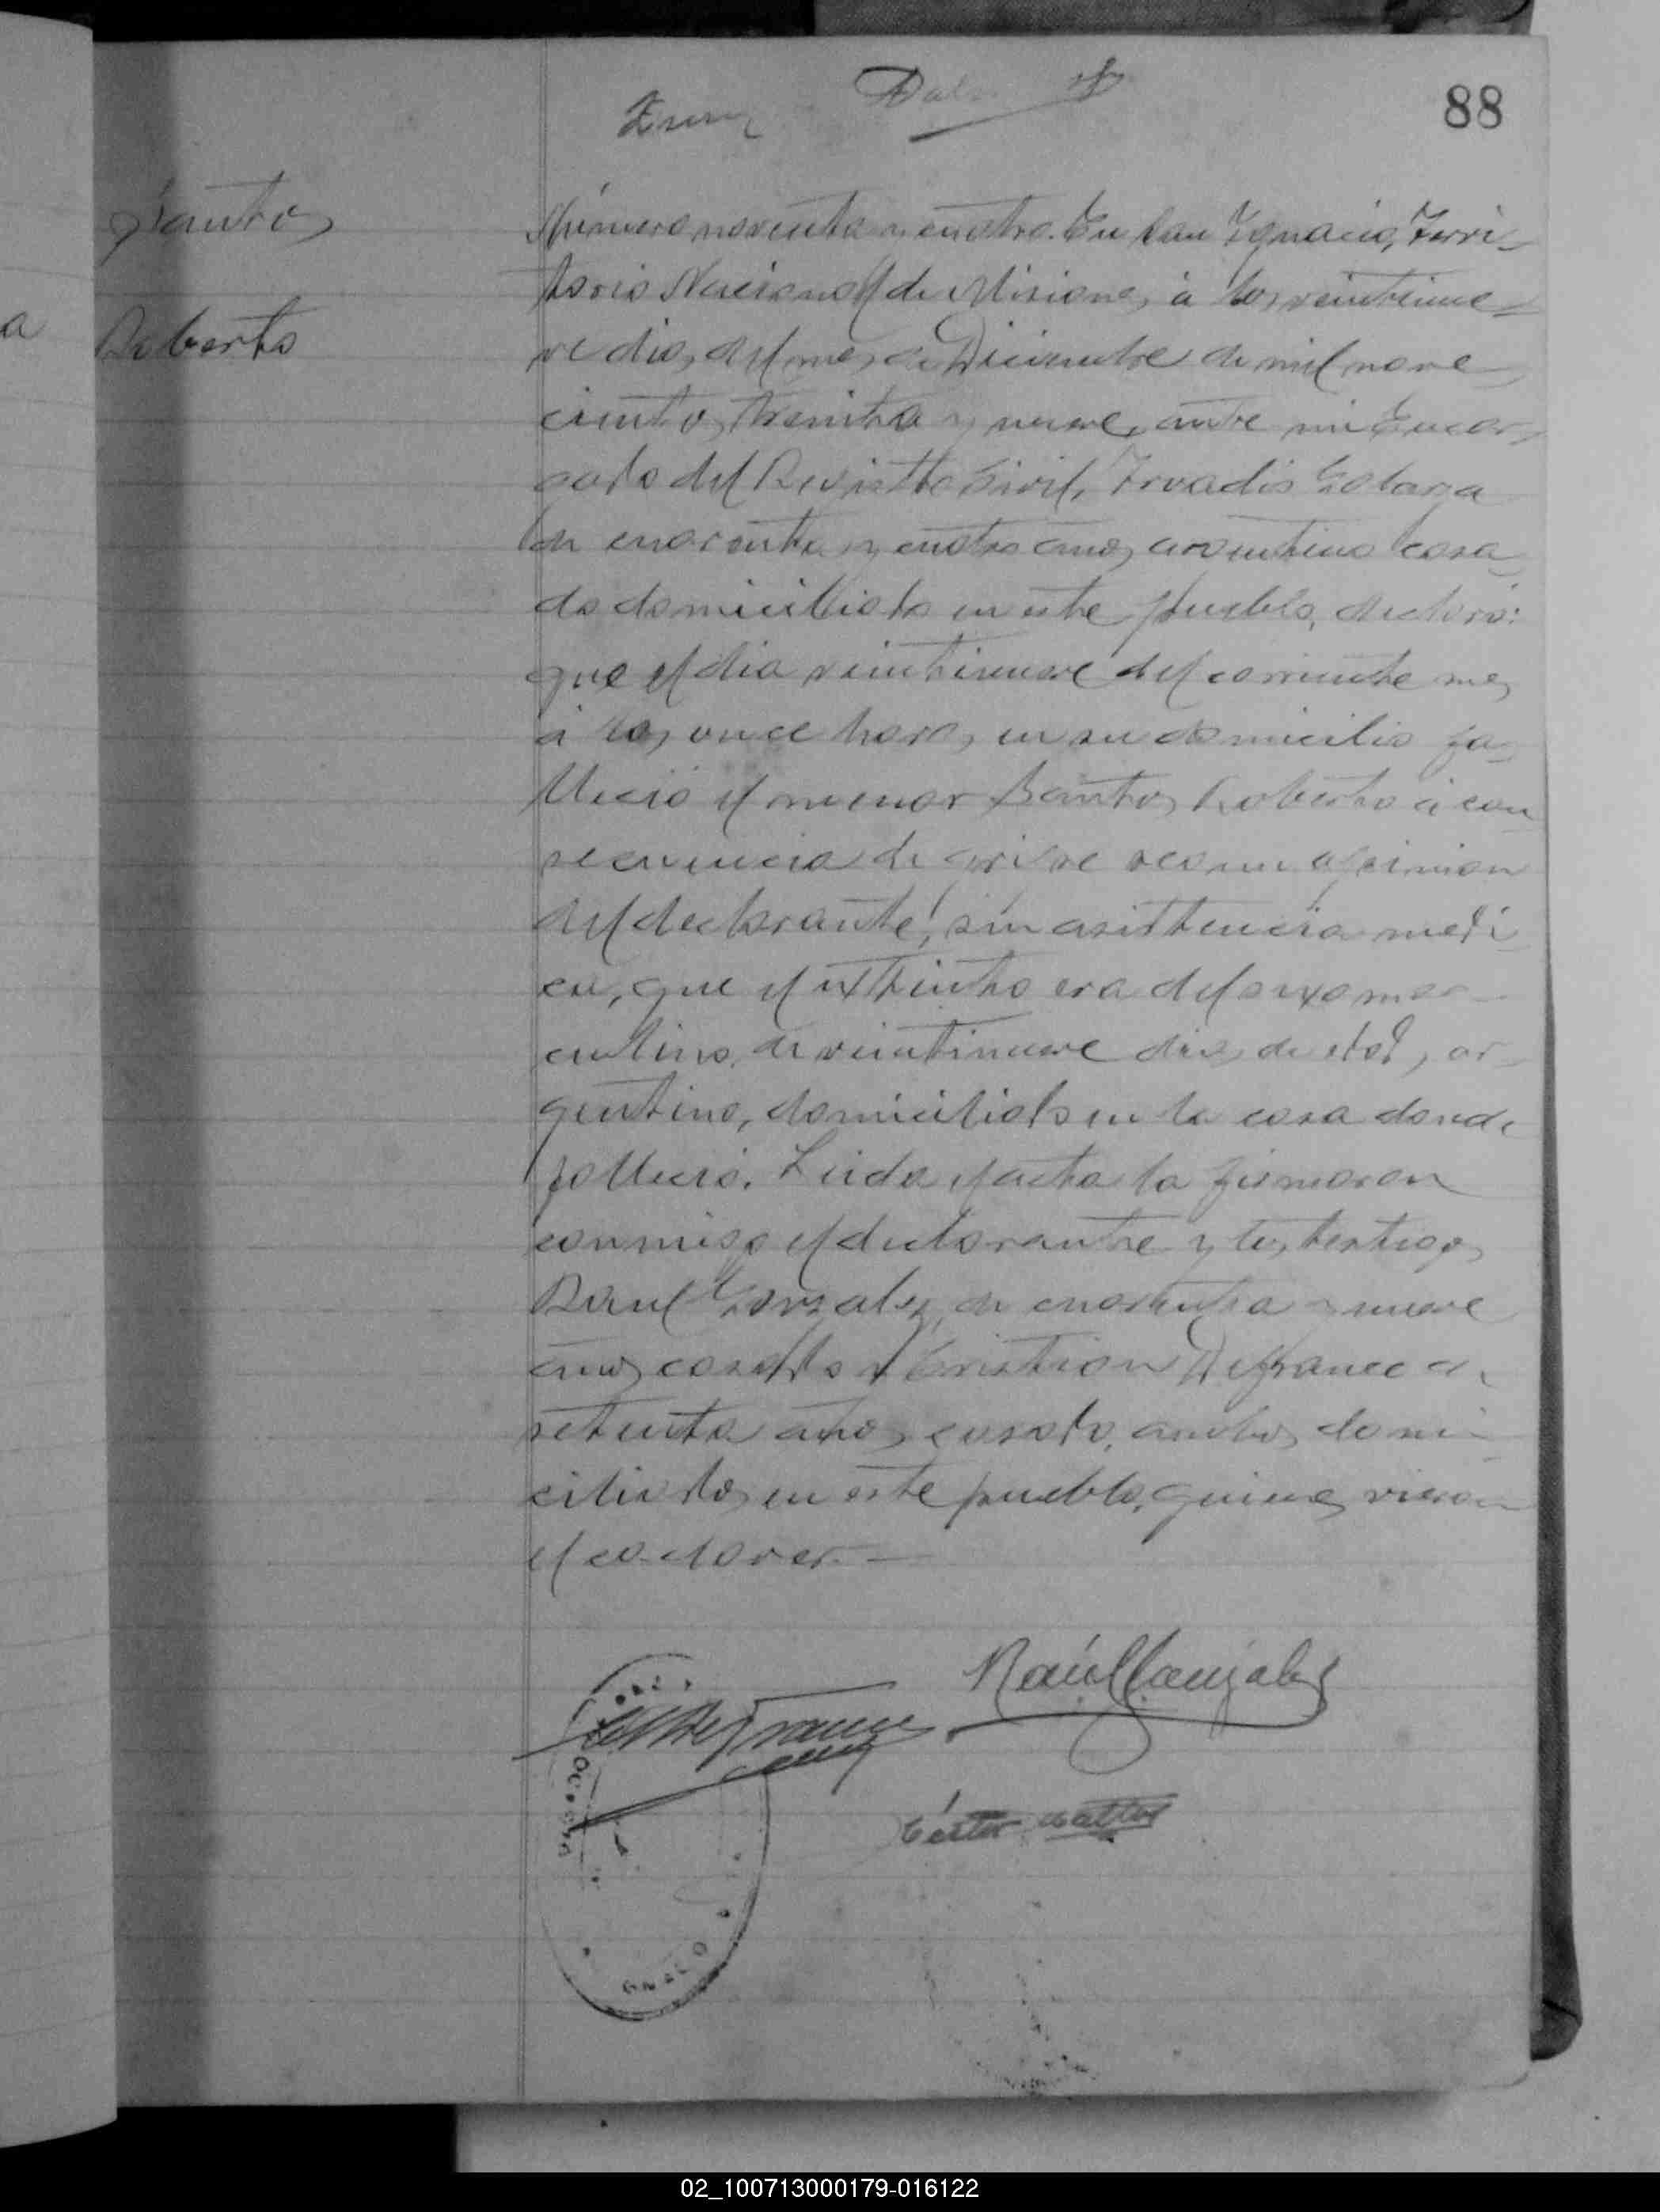 88
Santos
Roberto
a
Número noventa y cuatro. En San Ignacio, Terri-
torio Nacional de Misiones, á los veintinue-
ve dias, del mes de Diciembre de mil nove
cientos treinta y nueve, ante mi Encar-
gado del Registro Civil,
de cuarenta y cuatro años, argentino casa-
do domiciliado en este pueblo, declaró:
que el dia veintinueve del corriente mes
á las once horas, en su domicilio fa-
lleció el menor Santos Roberto á con
secuencia de gripe segun opinion
del declarante, sin asistencia medi-
ca, que el extinto era del sexo mas-
culino, de veintinueve dias de edad, ar-
gentino, domiciliado en la casa donde
falleció. Leida el acta la firmaron
conmigo el declarante y los testigos
Raul Gonzalez, de cuarenta y nueve
años casado y Cristian Defrance de
setenta años, casado, ambos domi-
ciliados en este pueblo, quienes vieron
el cadaver.—
Raúl Gonzalez
Defrance
02_100713000179-016122